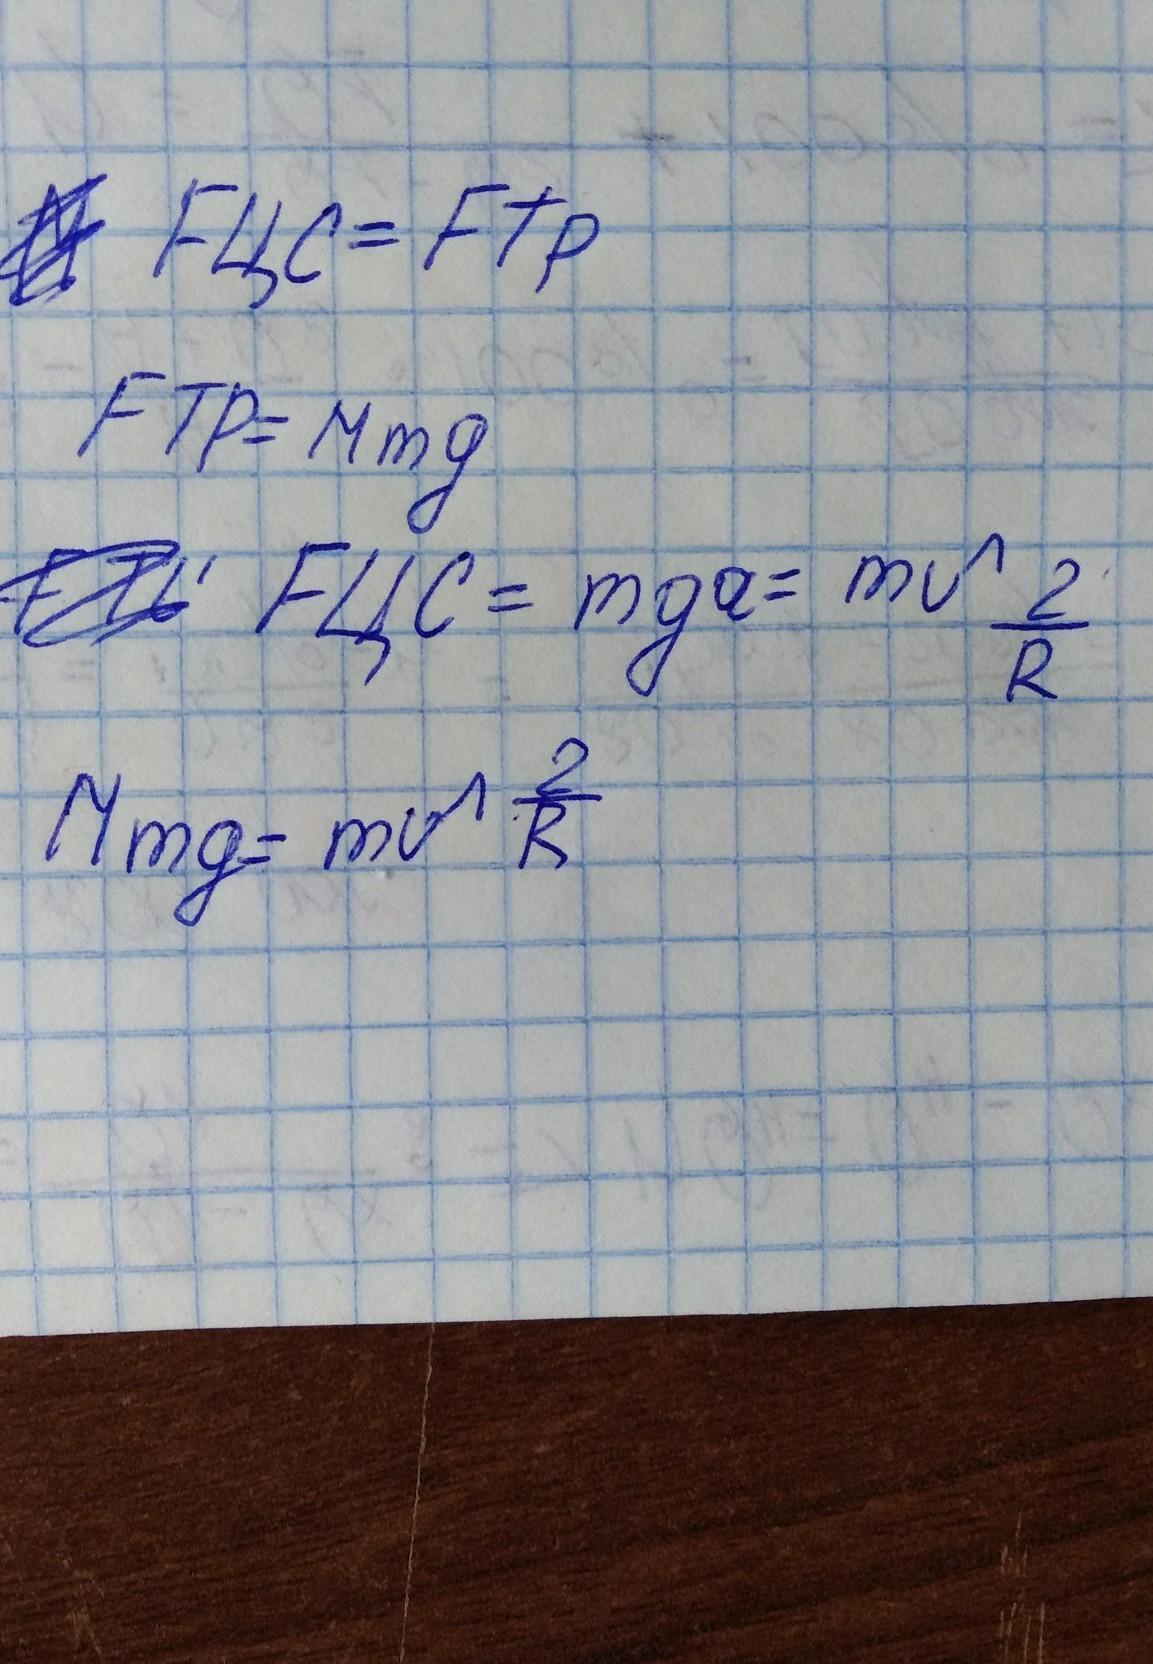 Fцс = Fтр
Fтр = Mmg
Fцс = mga = mv^2/R
Mmg = mv^2/R